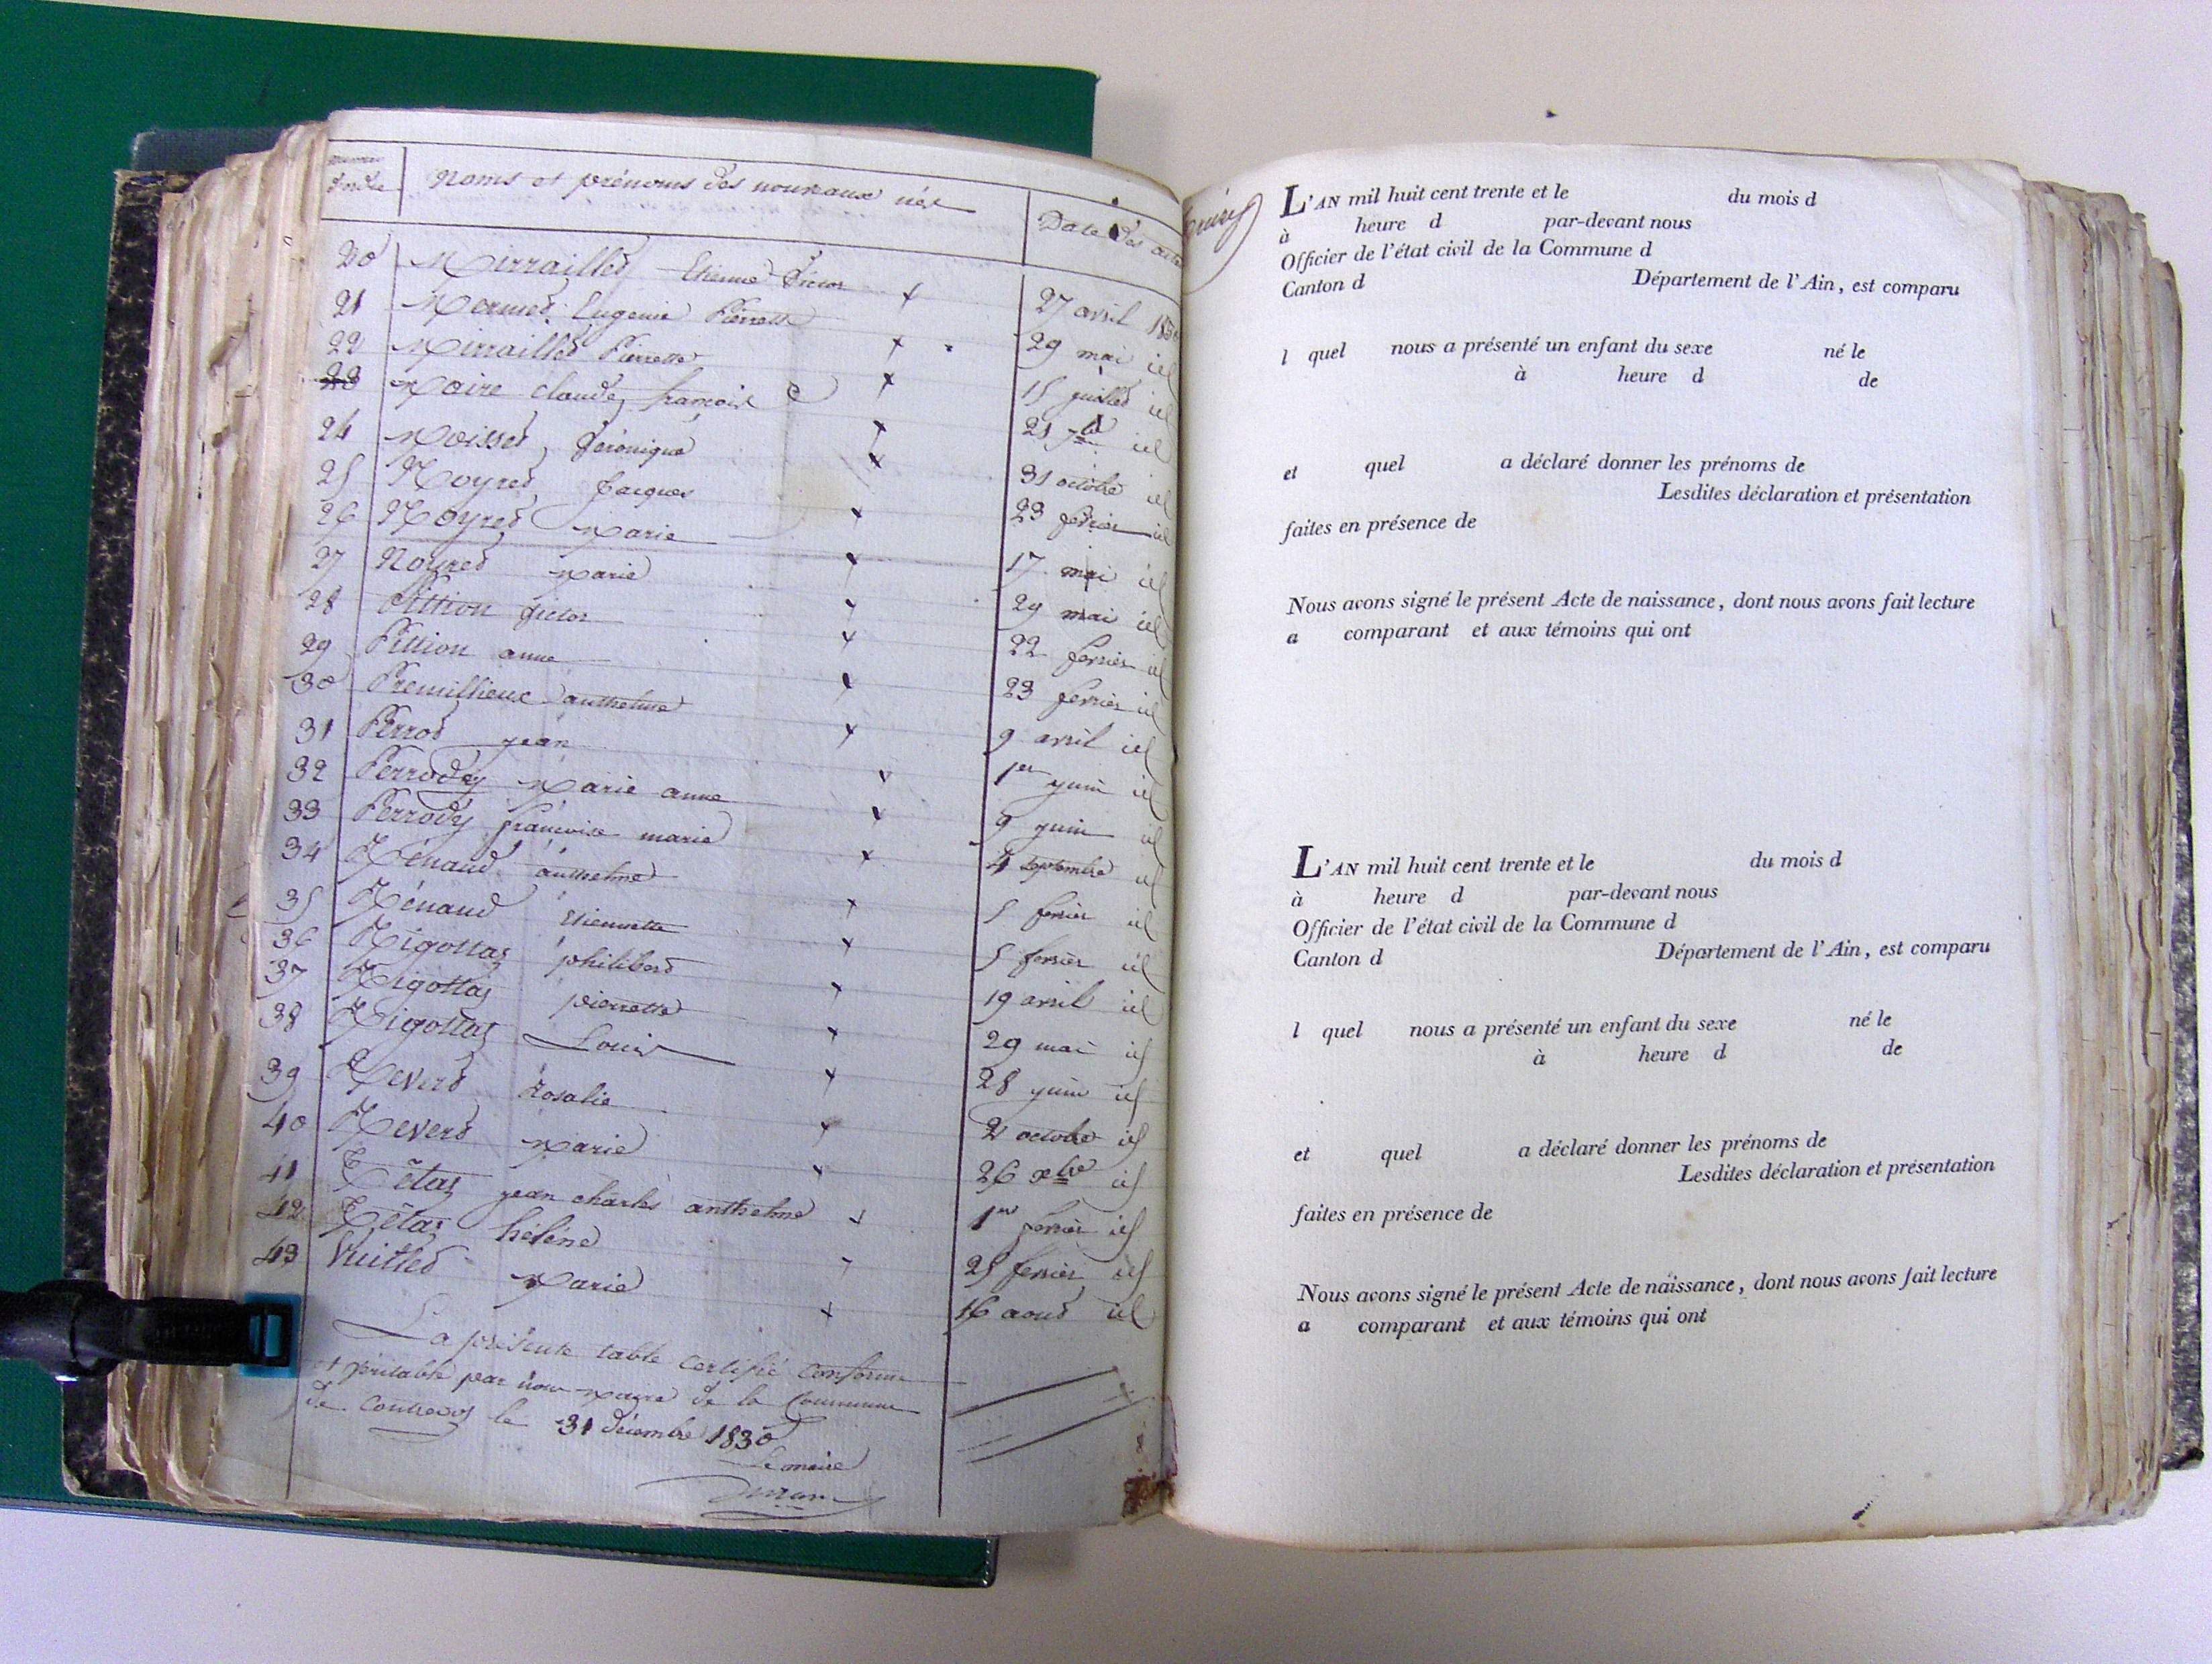 numero d'ordre
Noms et prénoms des nouveaux nés
Date des actes
20 Mirraillet Etienne Victor + 27 avril 1830
21 Mermet Eugenie Pierrette + 29 mai id
22 Mirraillet Pierrette + 15 juillet id
23 Maire claude françois + 21 7bre id
24 Moisset Véronique + 31 octobre id
25 Noyret Jacques + 23 fevrier id
26 Noyret Marie + 17 mai id
27 Noyret Marie + 29 mai id
28 Pittion Victor + 22 fevrier id
29 Pittion anne + 23 fevrier id
30 Premillieux anthelme + 9 avril id
31 Perrod jean + 1er juin id
32 Perrody Marie anne + 9 juin id
33 Perrody françoise marie + 4 septembre id
34 Rénaud anthelme + 5 fevrier id
35 Rénaud Etiennette + 5 fevrier id
36 Rigottaz philibert + 19 avril id
37 Rigottaz pierrette + 29 mai id
38 Rigottaz Louis + 28 juin id
39 Reverd Rosalie + 2 octobre id
40 Reverd Marie + 26 xbre id
41 Tétaz jean charles anthelme + 1er fevrier id
42 Tétaz hélène 25 fevrier id
43 Vuillet Marie + 16 aout id
La présente table certifié conforme
et véritable par nous Maire de la Commune
de Contrevoz le 31 décembre 1830
Le maire
L'AN mil huit cent trente et le du mois d
à heure d par-devant nous
Officier de l'état civil de la Commune d
Canton d Département de l'Ain, est comparu
l quel nous a présenté un enfant du sexe né le
à heure d de
et quel a déclaré donner les prénoms de
Lesdites déclaration et présentation
faites en présence de
Nous avons signé le présent Acte de naissance, dont nous avons fait lecture
a comparant et aux témoins qui ont
L'AN mil huit cent trente et le du mois d
à heure d par-devant nous
Officier de l'état civil de la Commune d
Canton d Département de l'Ain, est comparu
l quel nous a présenté un enfant du sexe né le
à heure d de
et quel a déclaré donner les prénoms de
Lesdites déclaration et présentation
faites en présence de
Nous avons signé le présent Acte de naissance, dont nous avons fait lecture
a comparant et aux témoins qui ont